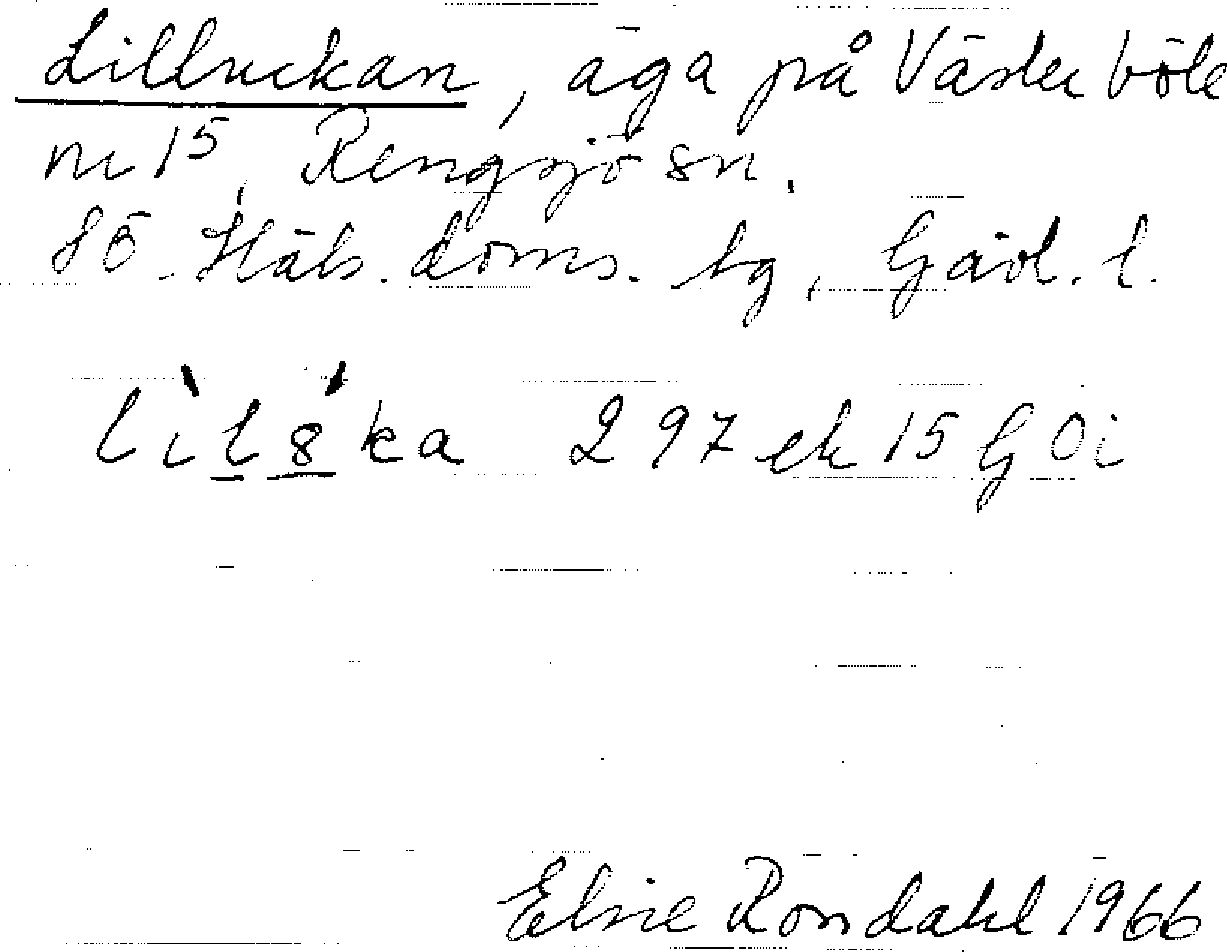 Lilluckan, äga på Västerböle
nr 15, Rengsjö sn.
SÖ. Häls. doms. tg, Gävl. l.
lìlśka 297 ek 15 G Oi
Elsie Rondahl 1966